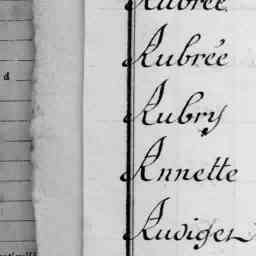 Aubrée
Aubrée
d
Aubry
Annette
Audiger